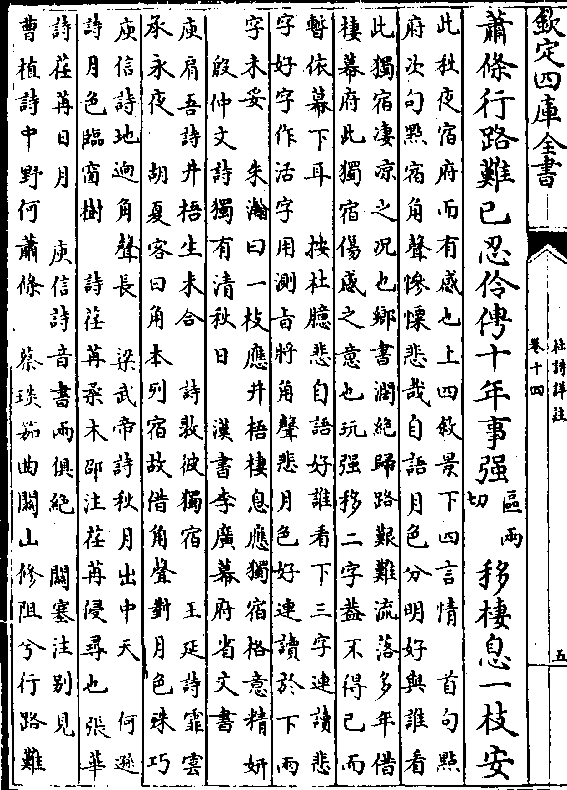 欽定四庫全書
杜詩詳註
卷十四
五
蕭條行路難已忍伶俜十年事强區兩切移棲息一枝安
此秋夜宿府而有感也上四敘景下四言情　首句點
府次句點宿角聲慘慄悲哉自語月色分明好與誰看
此獨宿凄凉之况也鄉書濶絶歸路艱難流落多年借
棲幕府此獨宿傷感之意也玩强移二字葢不得已而
暫依幕下耳　按杜臆悲自語好誰看下三字連讀悲
字好字作活字用測旨將角聲悲月色好連讀於下兩
字未妥　朱瀚曰一枝應井梧棲息應獨宿格意精妍
殷仲文詩獨有清秋日　漢書李廣幕府省文書
庾肩吾詩井梧生未合　詩敦彼獨宿　王延詩霏雲
承永夜　胡夏客曰角本列宿故借角聲對月色殊巧
庾信詩地逈角聲長　梁武帝詩秋月出中天　何遜
詩月色臨窗樹　詩荏苒柔木邵注荏苒侵尋也張華
詩荏苒日月　庾信詩音書兩俱絶　關塞注别見
曹植詩中野何蕭條　蔡琰笳曲關山修阻兮行路難